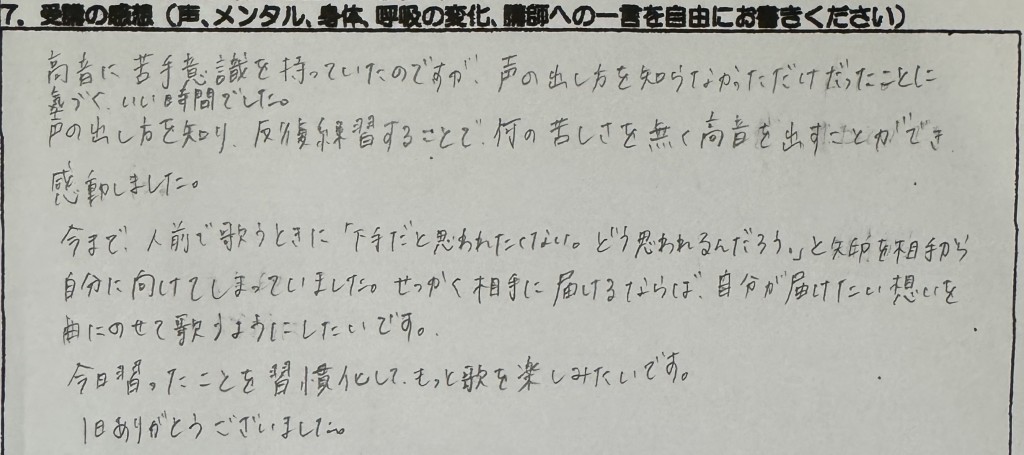 7. 受講の感想（声、メンタル、身体、呼吸の変化、講師への一言を自由にお書きください）
高音に苦手意識を持っていたのですが、声の出し方を知らなかっただけだったことに
気づく、いい時間でした。
声の出し方を知り、反復練習することで、何の苦しさを無く高音を出すことができ
感動しました。
今まで、人前で歌うときに「下手だと思われたくない。どう思われるんだろう。」と矢印を相手から
自分に向けてしまっていました。せっかく相手に届けるならば、自分が届けたい想いを
曲にのせて歌うようにしたいです。
今日習ったことを習慣化して、もっと歌を楽しみたいです。
1日ありがとうございました。